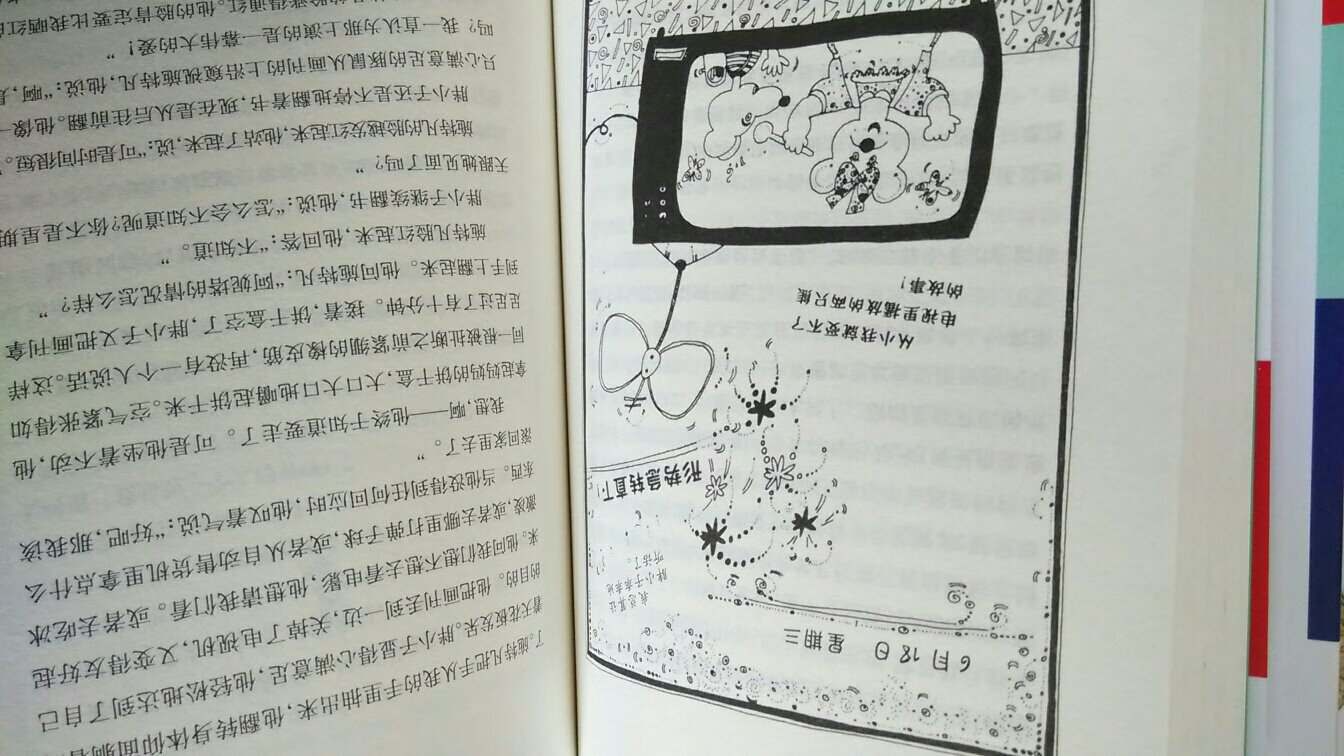 6月18日 星期三
我总算让
胖小子乖乖地
听话了。
形势急转直下!
从小我就受不了
电视里播放的两只熊
的故事!
了。施特凡把手从我的手里抽出来,他翻转身体仰面躺
着天花板发呆。胖小子显得心满意足,他轻松地达到了自己
的目的。他把画刊丢到一边,关掉了电视机,又变得友好起
来。他问我们想不想去看电影,他想请我们看。或者去吃冰
激凌,或者去哪里打弹子球,或者从自动售货机里拿点什么
东西。当他没得到任何回应时,他叹着气说:“好吧,那我该
滚回家里去了。”
我想,啊——他终于知道要走了。可是他坐着不动,他
拿起妈妈的饼干盒,大口大口地嚼起饼干来。空气紧张得如
同一根被扯断之前紧绷的橡皮筋,再没有一个人说话。这样
足足过了有十分钟。接着,饼干盒空了,胖小子又把画刊拿
到手上翻起来。他问施特凡:“阿妮塔的情况怎么样?”
施特凡脸红起来,他回答:“不知道。”
胖小子继续翻书,他说:“怎么会不知道呢?你不是星期
天跟她见面了吗?”
施特凡的脸越发红起来,他站了起来,说:“可是时间很短。”
胖小子还是不停地翻着书,现在是从后往前翻。他像一
只心满意足的豚鼠从画刊的上沿窥视施特凡,他说:“啊,是
吗?我一直认为那上演的是一幕伟大的爱!”
的脸涨得通红。他的脸肯定要比我晒红